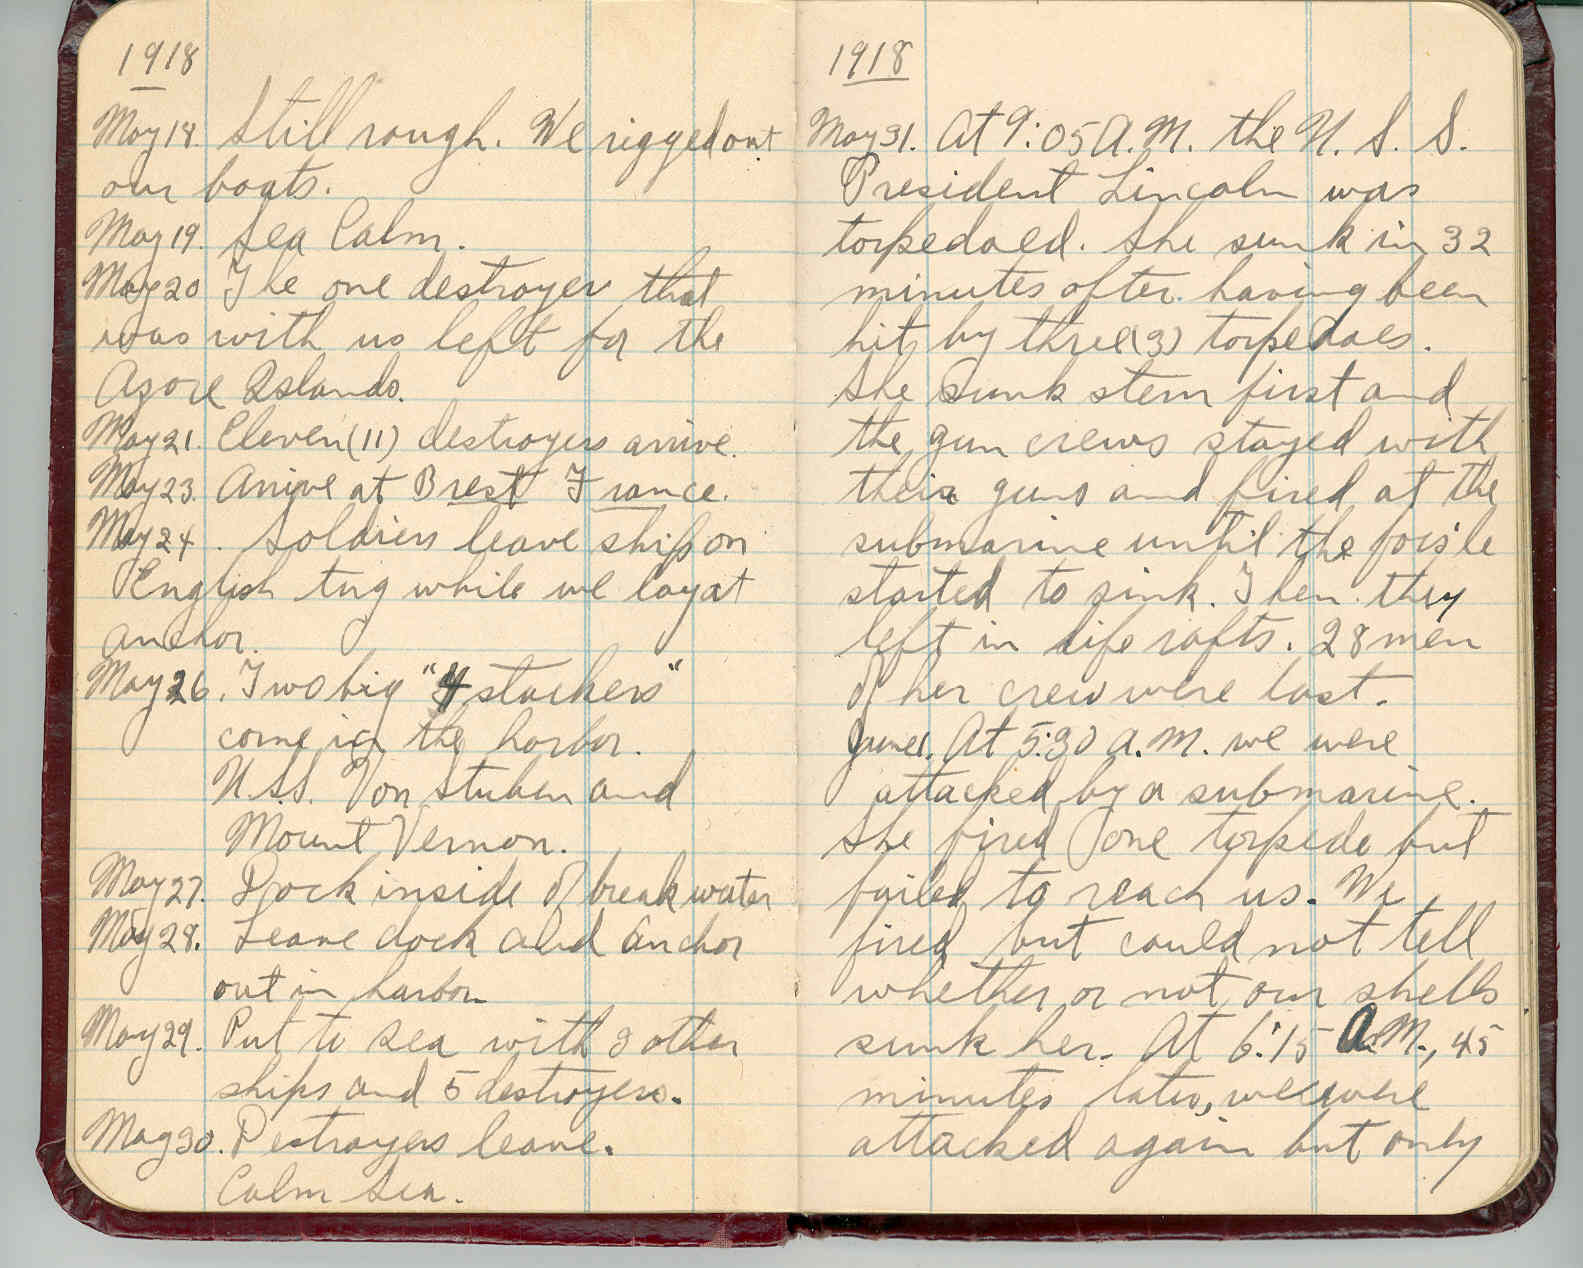 1918
May 18. Still rough. We rigged out
our boats.
May 19. Sea Calm.
May 20 The one destroyer that
was with us left for the
Azore Islands.
May 21. Eleven (11) destroyers arrive.
May 23. Arrive at Brest France.
May 24. Soldiers leave ship on
English tug while we lay at
anchor.
May 26. Two big "4 stackers"
come in the harbor.
U.S.S. Von Stuben and
Mount Vernon.
May 27. Dock inside of break water
May 28. Leave dock and anchor
out in harbor
May 29. Put to sea with 3 other
ships and 5 destroyers.
May 30. Destroyers leave.
Calm Sea.
1918
May 31. At 9:05 A.M. the U. S. S.
President Lincoln was
torpedoed. She sunk in 32
minutes after having been
hit by three (3) torpedoes.
She sunk stern first and
the gun crews stayed with
their guns and fired at the
submarine until the foc'sle
started to sink. Then they
left in life rafts. 28 men
of her crew were lost.
June 1. At 5:30 A.M. we were
attacked by a submarine.
She fired one torpedo but
failed to reach us. We
fired but could not tell
whether or not our shells
sunk her. At 6:15 A.M., 45
minutes later, we were
attacked again but only